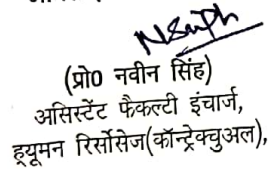 (प्रो0 नवीन सिंह)
असिस्टेंट फैकल्टी इंचार्ज,
ह्यूमन रिर्सोसेज(कॉन्ट्रेक्चुअल),